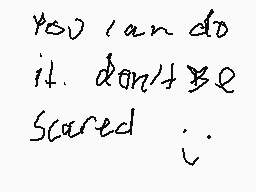 You can do
it. don't Be
scared :)